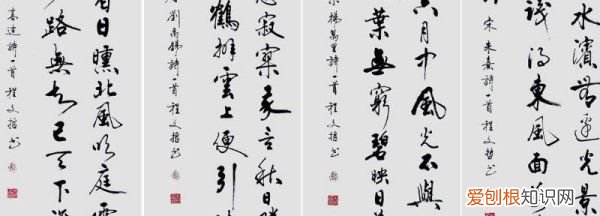 水濱無邊光景
識得東風面
宋朱熹詩一首程文哲書
六月中風光不與
葉無窮碧映日
宋楊萬里詩一首程文哲書
悲寂寥我言秋日勝
鶴排雲上便引
劉禹錫詩一首程文哲書
日曛北風吹
路無知己天下誰
高適詩一首程文哲書
爱刨根知识网